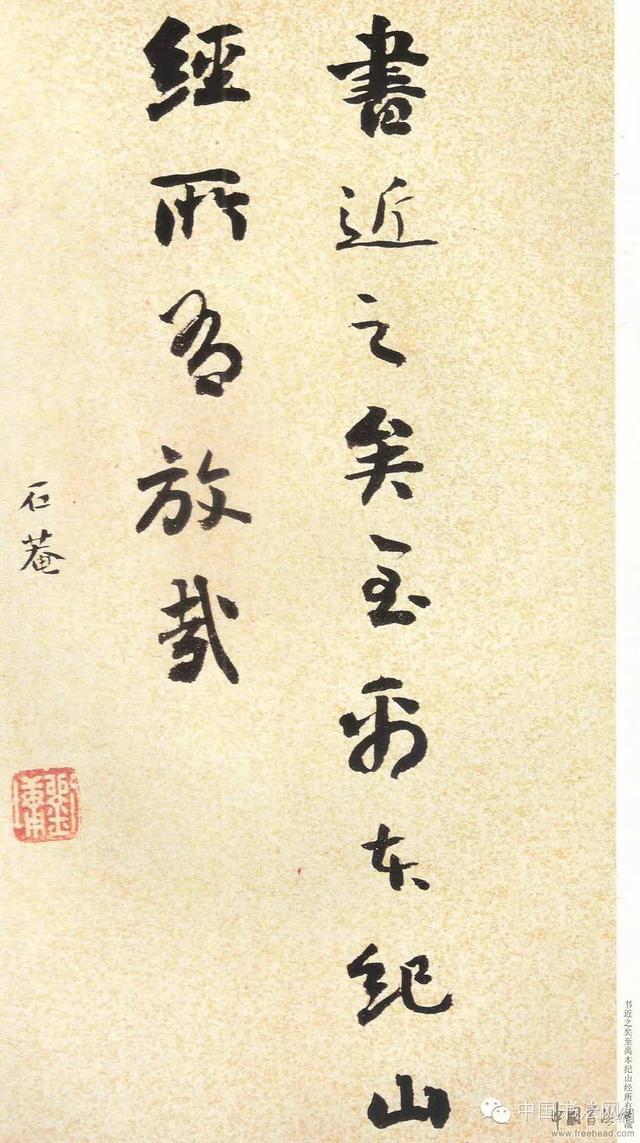 書近之矣至禹本紀山
經所有放哉
石菴
劉墉
书近之矣至禹本纪山经所有放哉
中国书法网
www.freehead.com